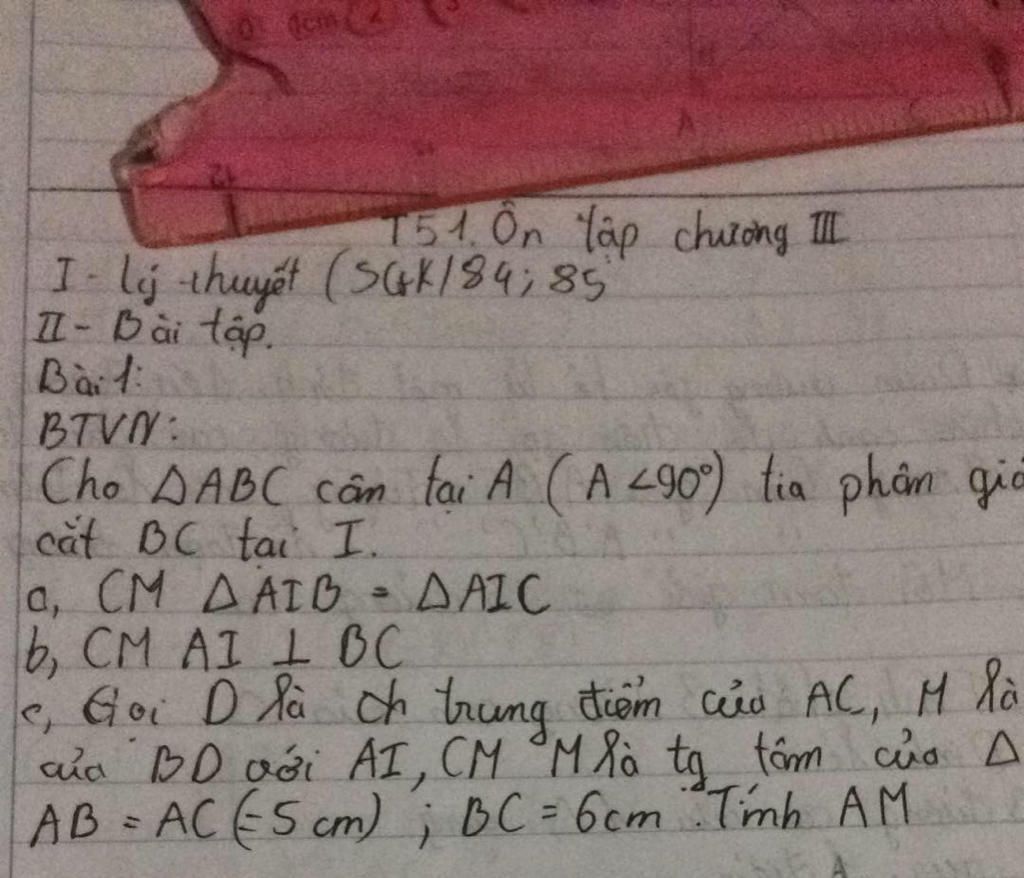 0 1cm 2 3
T51. Ôn tập chương III
I - Lý thuyết (SGK/84; 85
II - Bài tập.
Bài 1:
BTVN:
Cho ΔABC cân tại A (A <90°) tia phân giá
cắt BC tại I.
a, CM ΔAIB = ΔAIC
b, CM AI ⊥ BC
c, Gọi D là trung điểm của AC, M là
của BD với AI, CM M là tg tâm của Δ
AB = AC (=5 cm) ; BC = 6cm. Tính AM